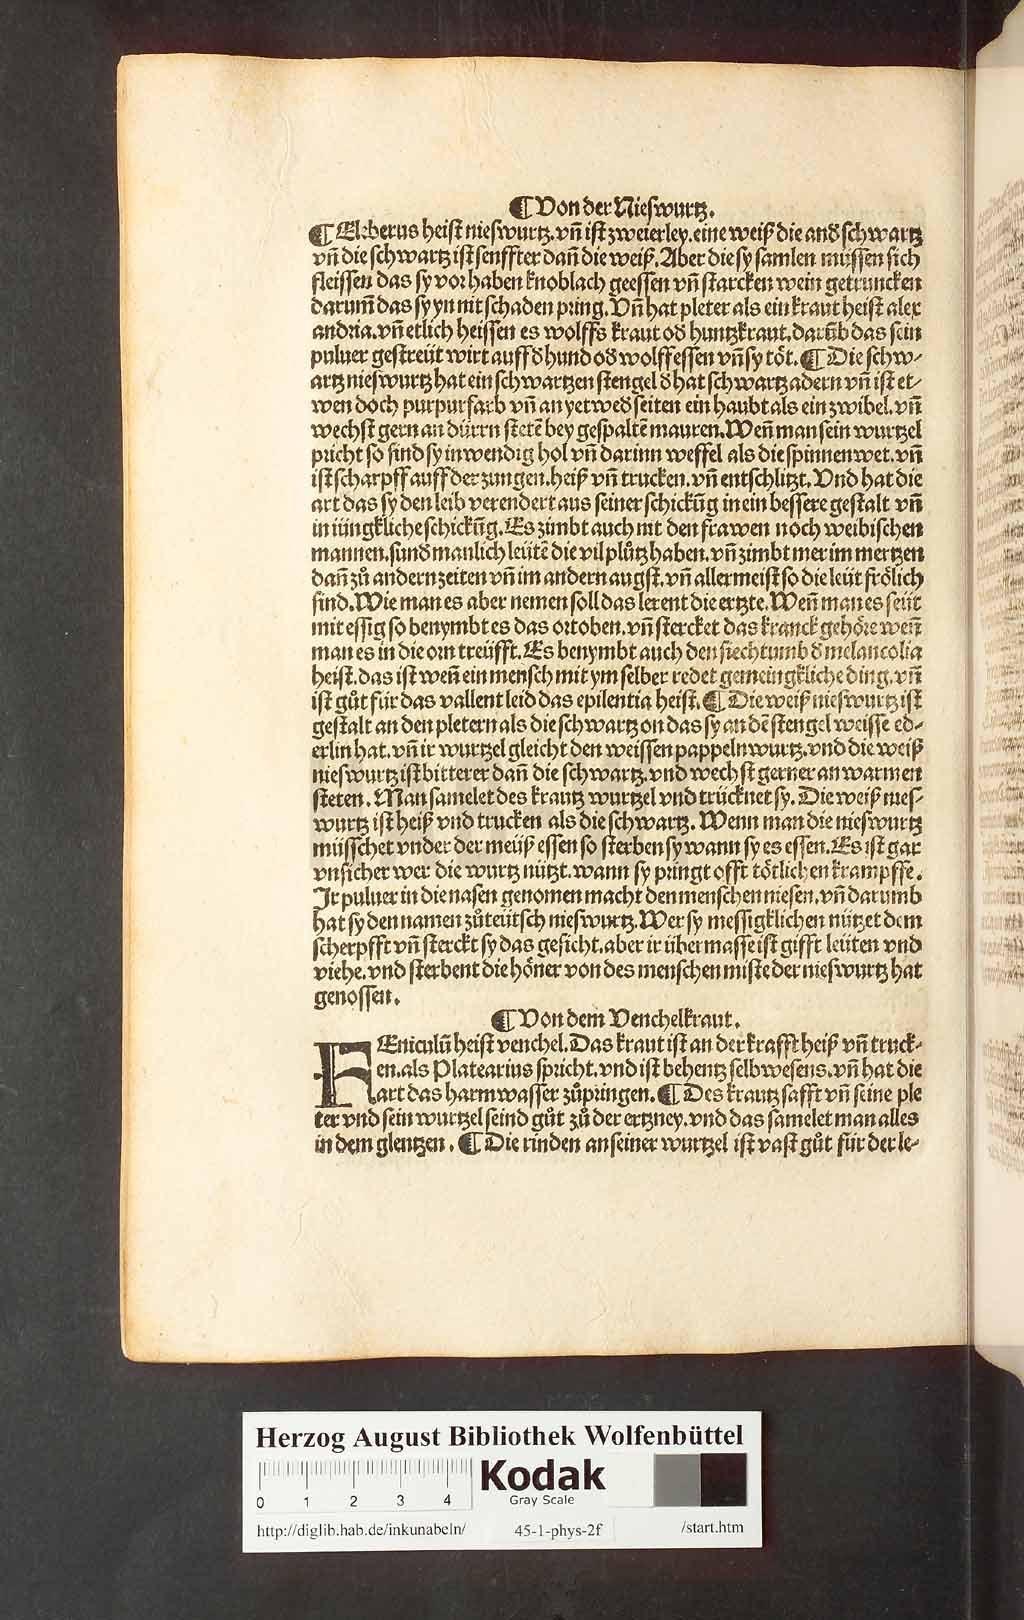 ¶ Von der Nieswurtz.
¶ Elleberus heist nieswurtz. vn̄ ist zweierley. eine weiß die and̄ schwartz
vn̄ die schwartz ist senffter dañ die weiß. Aber die sy samlen müssen sich
fleissen das sy vor haben knoblach geessen vn̄ starcken wein getruncken
darum̄ das sy yn nit schaden pring. Vn̄ hat pleter als ein kraut heist alex
andria. vn̄ etlich heissen es wolffs kraut od̄ huntzkraut. darūb das sein
puluer gestreüt wirt auff d̄ hund od̄ wolff essen vn̄ sy töt. ¶ Die schw-
artz nieswurtz hat ein schwartzen stengel d̄ hat schwartz adern vn̄ ist et-
wen doch purpurfarb vn̄ an yetwed̄ seiten ein haubt als ein zwibel. vn̄
wechst gern an dürrn stetē bey gespaltē mauren. Weñ man sein wurtzel
pricht so sind sy inwendig hol vn̄ darinn weffel als die spinnenwet. vn̄
ist scharpff auff der zungen. heiß vn̄ trucken. vn̄ entschlitzt. Vnd hat die
art das sy den leib verendert aus seiner schickūg in ein bessere gestalt vn̄
in iüngkliche schickūg. Es zimbt auch nit den frawen noch weibischen
mannen. sund̄ manlich leütē die vil plůtz haben. vn̄ zimbt mer im mertzen
dañ zů andern zeiten vn̄ im andern augst. vn̄ allermeist so die leüt frölich
sind. Wie man es aber nemen soll das lerent die ertzte. Weñ man es seüt
mit essig so benymbt es das ortoben. vn̄ stercket das kranck gehöre weñ
man es in die orn treüfft. Es benymbt auch den siechtumb d̄ melancolia
heist. das ist weñ ein mensch mit ym selber redet gemeingkliche ding. vn̄
ist gůt für das vallent leid das epilentia heist. ¶ Die weiß nieswurtz ist
gestalt an den pletern als die schwartz on das sy an dē stengel weisse ed-
erlin hat. vn̄ ir wurtzel gleicht den weissen pappelnwurtz. vnd die weiß
nieswurtz ist bitterer dañ die schwartz. vnd wechst gerner an warmen
steten. Man samelet des krautz wurtzel vnd trücknet sy. Die weiß nies-
wurtz ist heiß vnd trucken als die schwartz. Wenn man die nieswurtz
müsschet vnder der meüß essen so sterben sy wann sy es essen. Es ist gar
vnsicher wer die wurtz nützt. wann sy pringt offt tötlichen krampffe.
Ir puluer in die nasen genomen macht den menschen niesen. vn̄ darumb
hat sy den namen zů teütsch nieswurtz. Wer sy messigklichen nützet dem
scherpfft vn̄ sterckt sy das gesicht. aber ir über masse ist gifft leüten vnd
viehe. vnd sterbent die höner von des menschen miste der nieswurtz hat
genossen.
¶ Von dem Venchelkraut.
FEniculū heist venchel. Das kraut ist an der krafft heiß vn̄ truck-
en. als Platearius spricht. vnd ist behentz selbwesens. vn̄ hat die
art das harmwasser zů pringen. ¶ Des krautz safft vn̄ seine ple
ter vnd sein wurtzel seind gůt zů der ertzney. vnd das samelet man alles
in dem glentzen. ¶ Die rinden an seiner wurtzel ist vast gůt für der le-
Herzog August Bibliothek Wolfenbüttel
0 1 2 3 4
Kodak
Gray Scale
http://diglib.hab.de/inkunabeln/ 45-1-phys-2f /start.htm